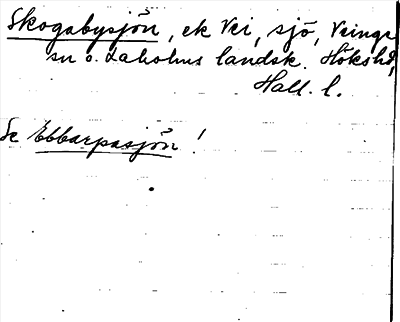 Skogabysjön, ek Vei, sjö, Veinge
sn o. Laholms landsk. Höks hd,
Hall. l.
Se Ebbarpasjön!